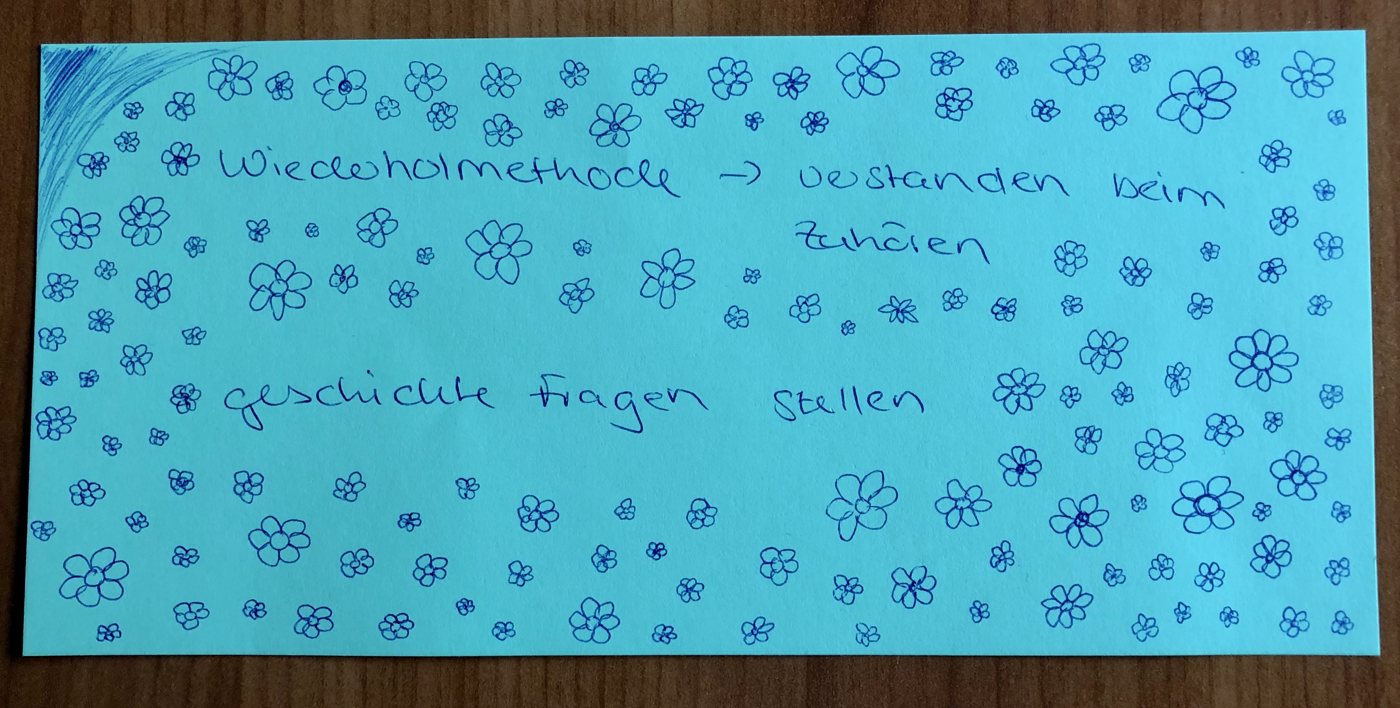 Wiederholmethode → verstanden beim
Zuhören
geschickte Fragen stellen